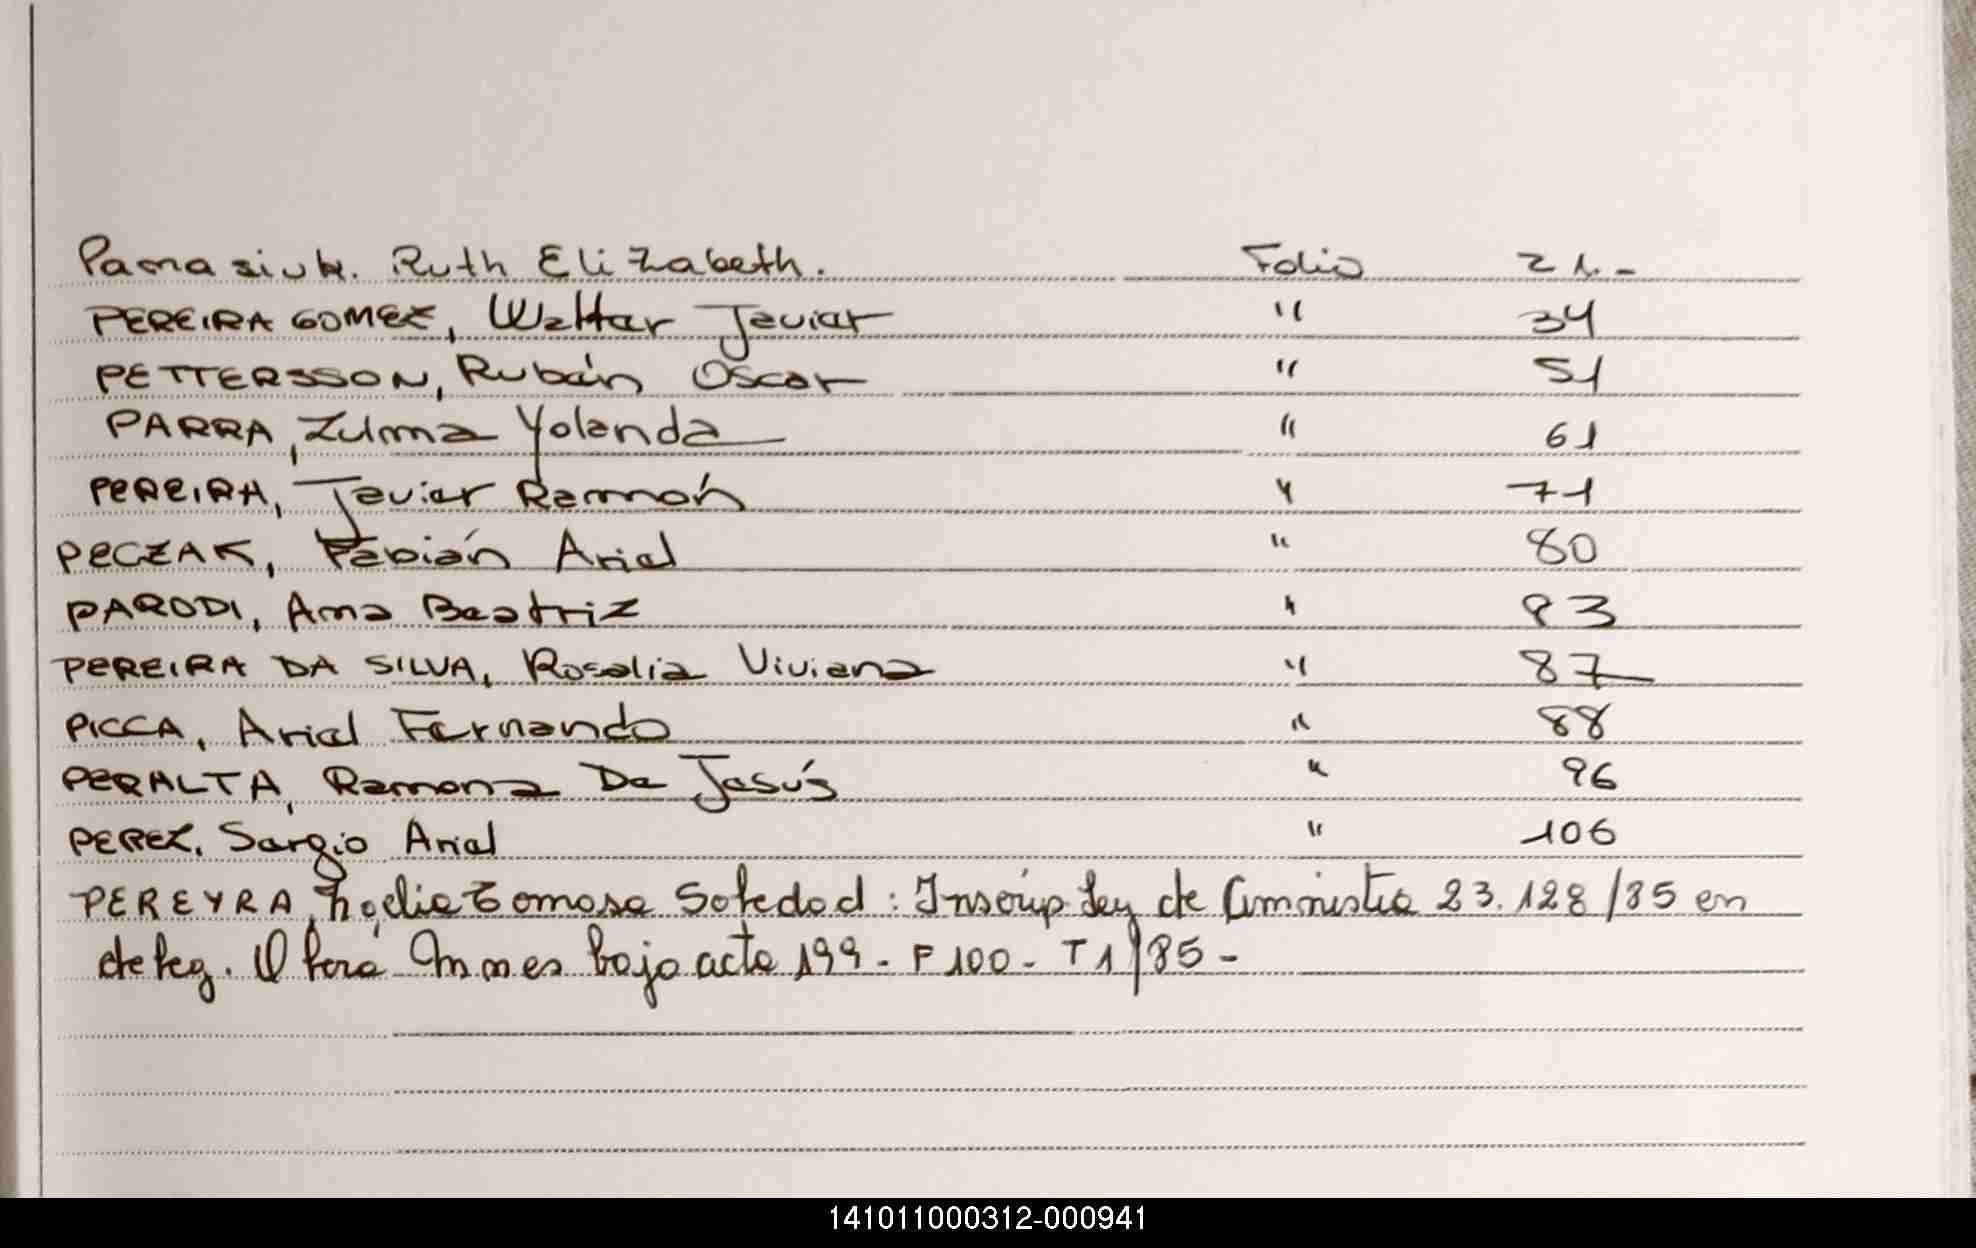 Panasiuk. Ruth Elizabeth. Folio 21.-
PEREIRA GOMEZ, Walter Javier " 34
PETTERSSON, Rubén Oscar " 51
PARRA, Zulma Yolanda " 61
PEREIRA, Javier Ramón " 71
PECZAK, Fabián Ariel " 80
PARODI, Ana Beatriz " 83
PEREIRA DA SILVA, Rosalia Viviana " 87
PICCA, Ariel Fernando " 88
PERALTA, Ramona De Jesús " 96
PEREZ, Sergio Ariel " 106
PEREYRA, Soledad : Inscrip Ley de Amnistia 23.128/85 en
deleg. Oberá bajo acta 199 - F 100 - T 1/85 -
141011000312-000941